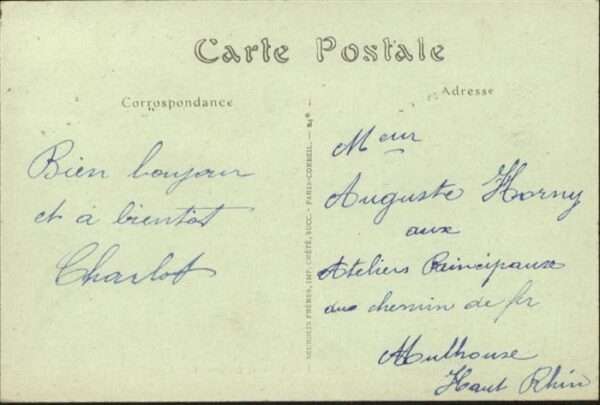 Carte Postale
Correspondance
Adresse
Bien bonjour
et à bientôt
Charlot
Meur
Auguste Horny
aux
Ateliers Principaux
du chemin de fer
Mulhouse
Haut Rhin
FRÈRES, IMP. CRÉTÉ, SUCC. — PARIS-CORBEIL. —